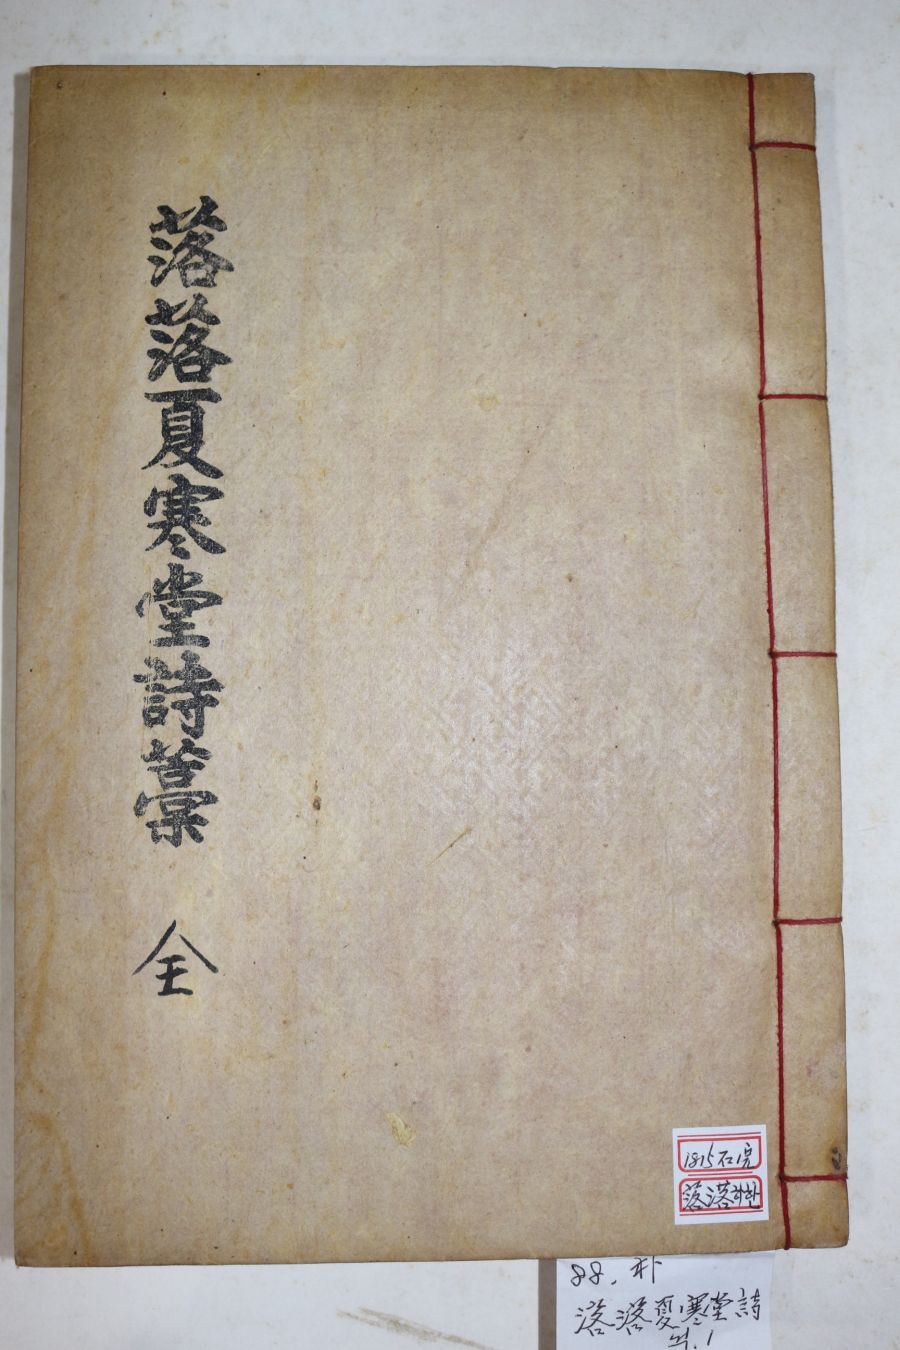 落落夏寒堂詩藁 全
1815石完
落落하한
88. 朴
落落夏寒堂詩
1